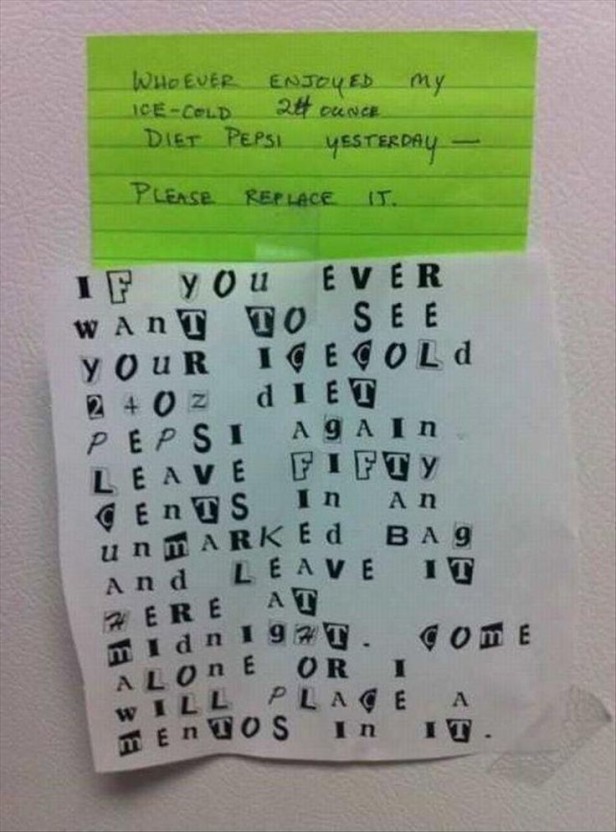 WHOEVER ENJOYED My
ICE-COLD 24 OUNCE
DIET PEPSI YESTERDAY —
PLEASE REPLACE IT.
IF yOu EVER
wAnT TO SEE
yOuR ICECOLd
24Oz dIET
PEPSI AgAIn
LEAVE FIFTy
CEnTS In An
unmARKEd BAg
And LEAVE IT
HERE AT
mIdnIgHT. COmE
ALOnE OR I
wILL PLACE A
mEnTOS In IT.